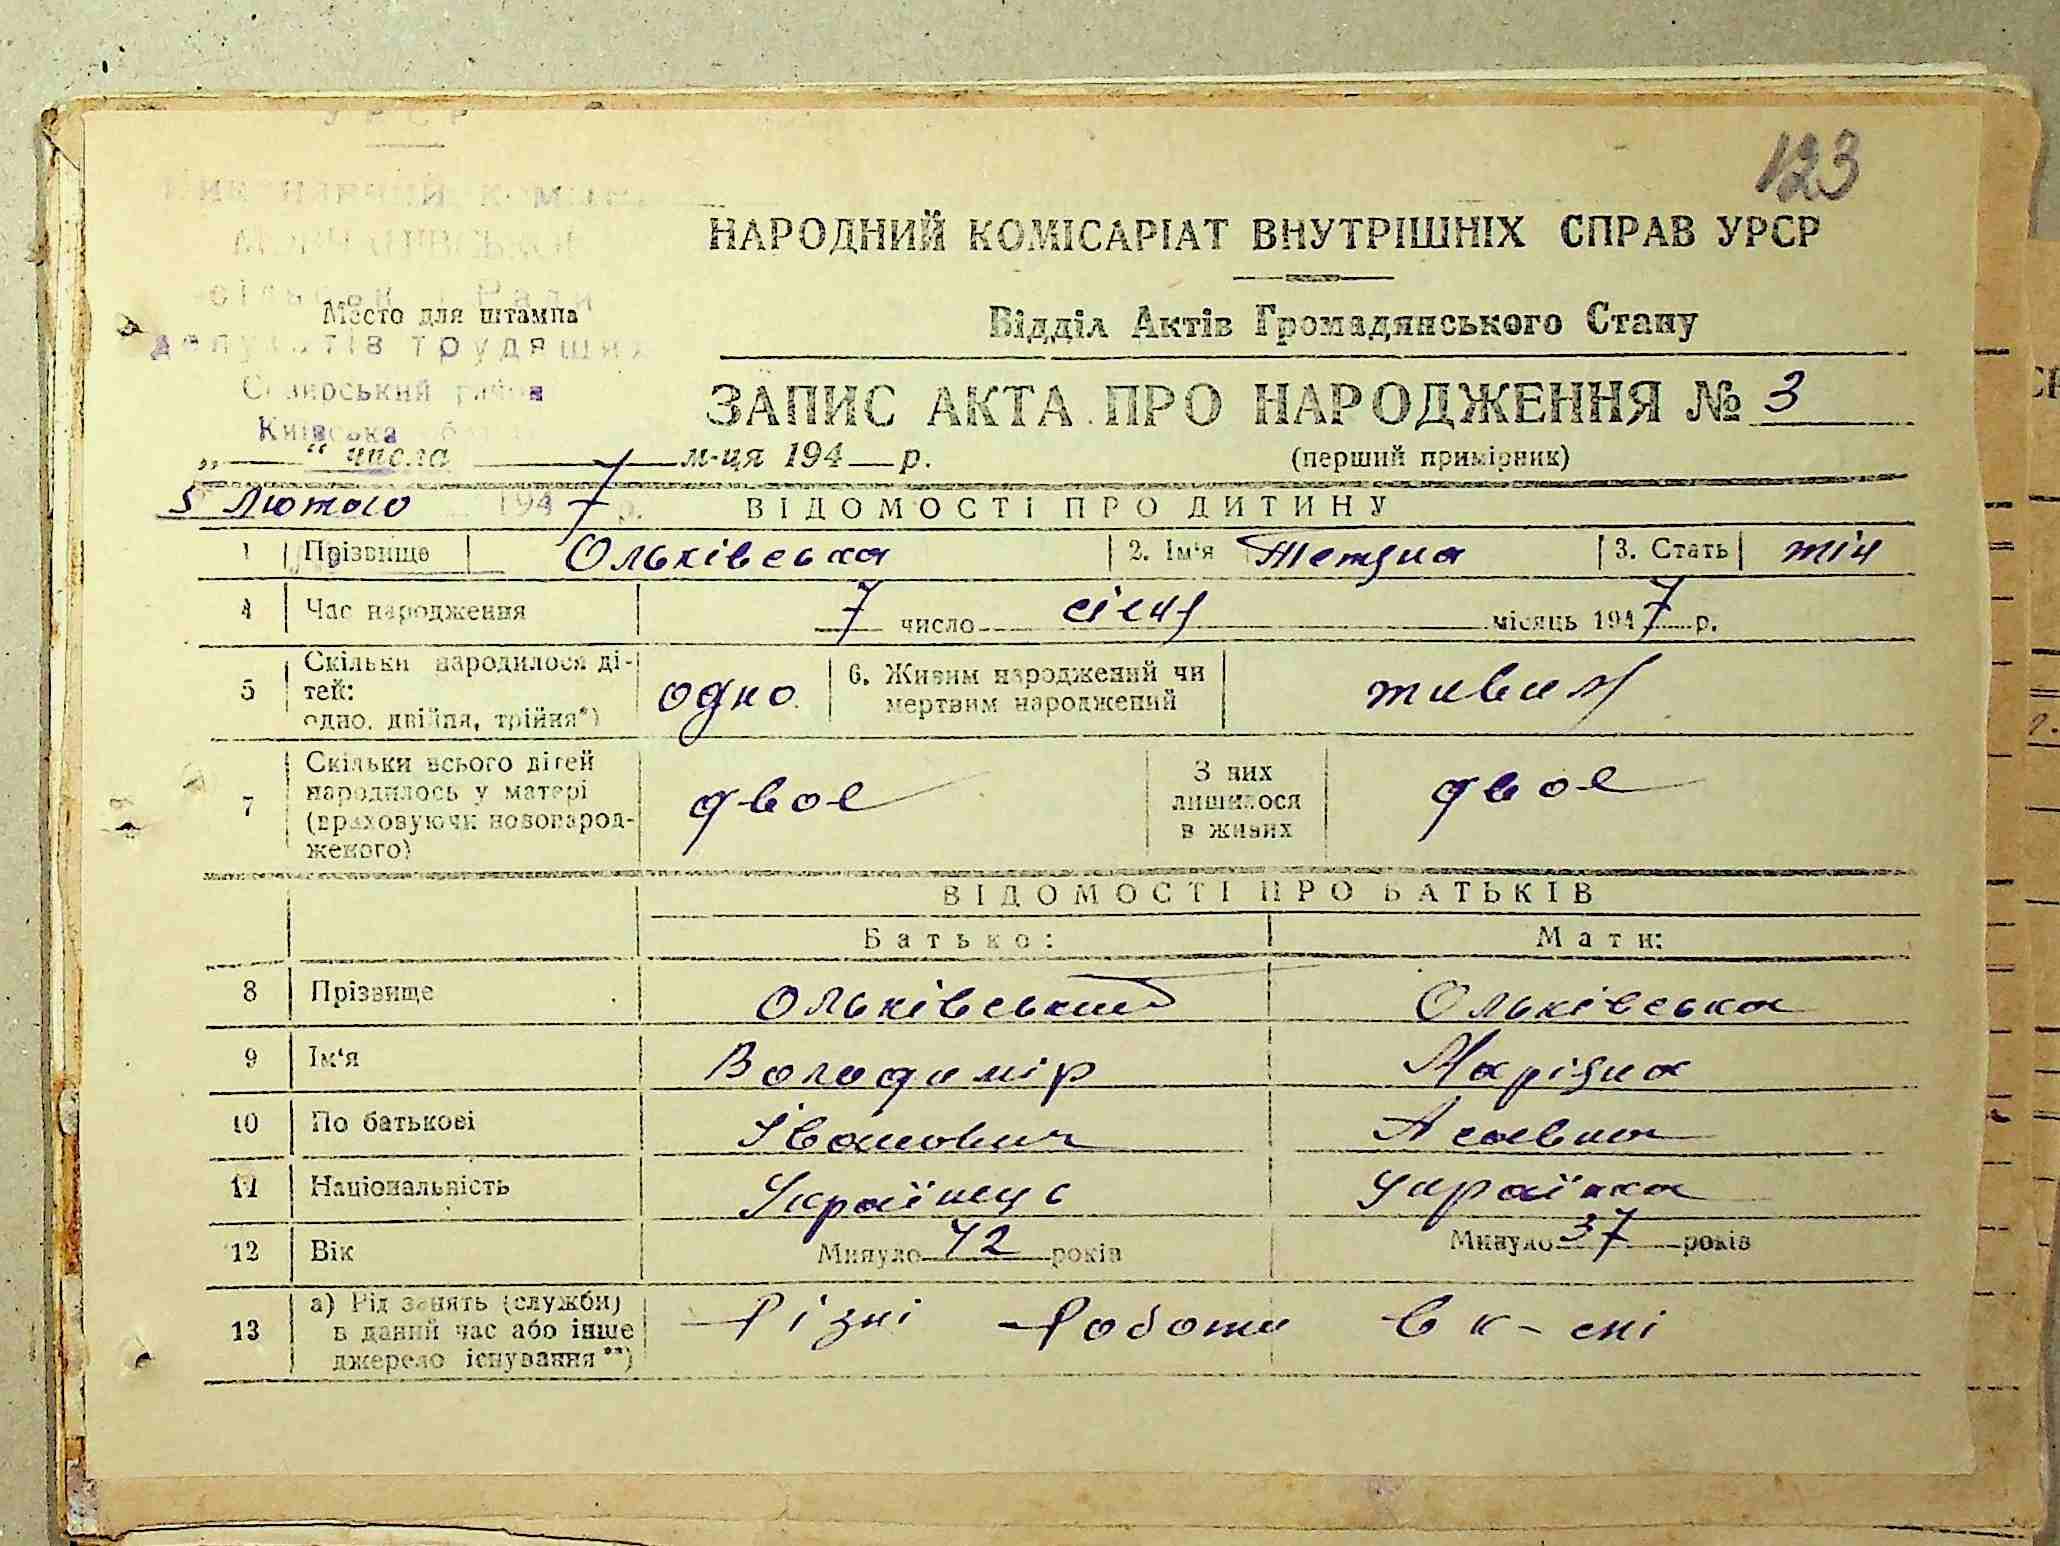 УРСР
123
НАРОДНИЙ КОМІСАРІАТ ВНУТРІШНІХ СПРАВ УРСР
Место для штампа
Відділ Актів Громадянського Стану
депутатів трудящих
Київська
ЗАПИС АКТА ПРО НАРОДЖЕННЯ № 3
„ “ числа м-ця 194 р.
(перший примірник)
5 Лютого 1947 р.
ВІДОМОСТІ ПРО ДИТИНУ
1 Прізвище Ольківська 2. Ім‘я Тетяна 3. Стать жін
4 Час народження 7 число січня місяць 1947 р.
5 Скільки народилося дітей: одно, двійня, трійня*) одно 6. Живим народжений чи мертвим народжений живим
7 Скільки всього дітей народилось у матері (враховуючи новонародженого) двое З них лишилося в живих двое
ВІДОМОСТІ ПРО БАТЬКІВ
Батько: Мати:
8 Прізвище Ольківський Ольківська
9 Ім‘я Володимір Маріяна
10 По батькові Іванович
11 Національність Українець Українка
12 Вік Минуло 42 років Минуло 37 років
13 а) Рід занять (служби) в даний час або інше джерело існування**) Різні Роботи в к-спі